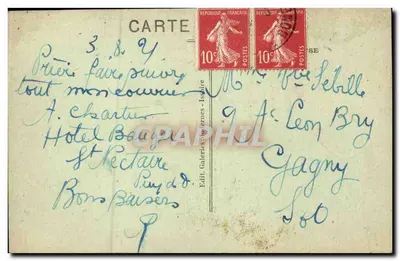 CARTE
RSE
REPUBLIQUE FRANÇAISE
10c
POSTES
REPUBLIQUE FRANÇAISE
10c
POSTES
3. 8. 21
Prière faire suivre
tout mon courrier
A. Chartier
Hotel
St Nectaire
Puy d D.
Bons Baisers
Mme Vve Sebille
9 Av Leon Bry
Gagny
S. O.
Edit. Galeries Modernes - Issoire
CPHIL